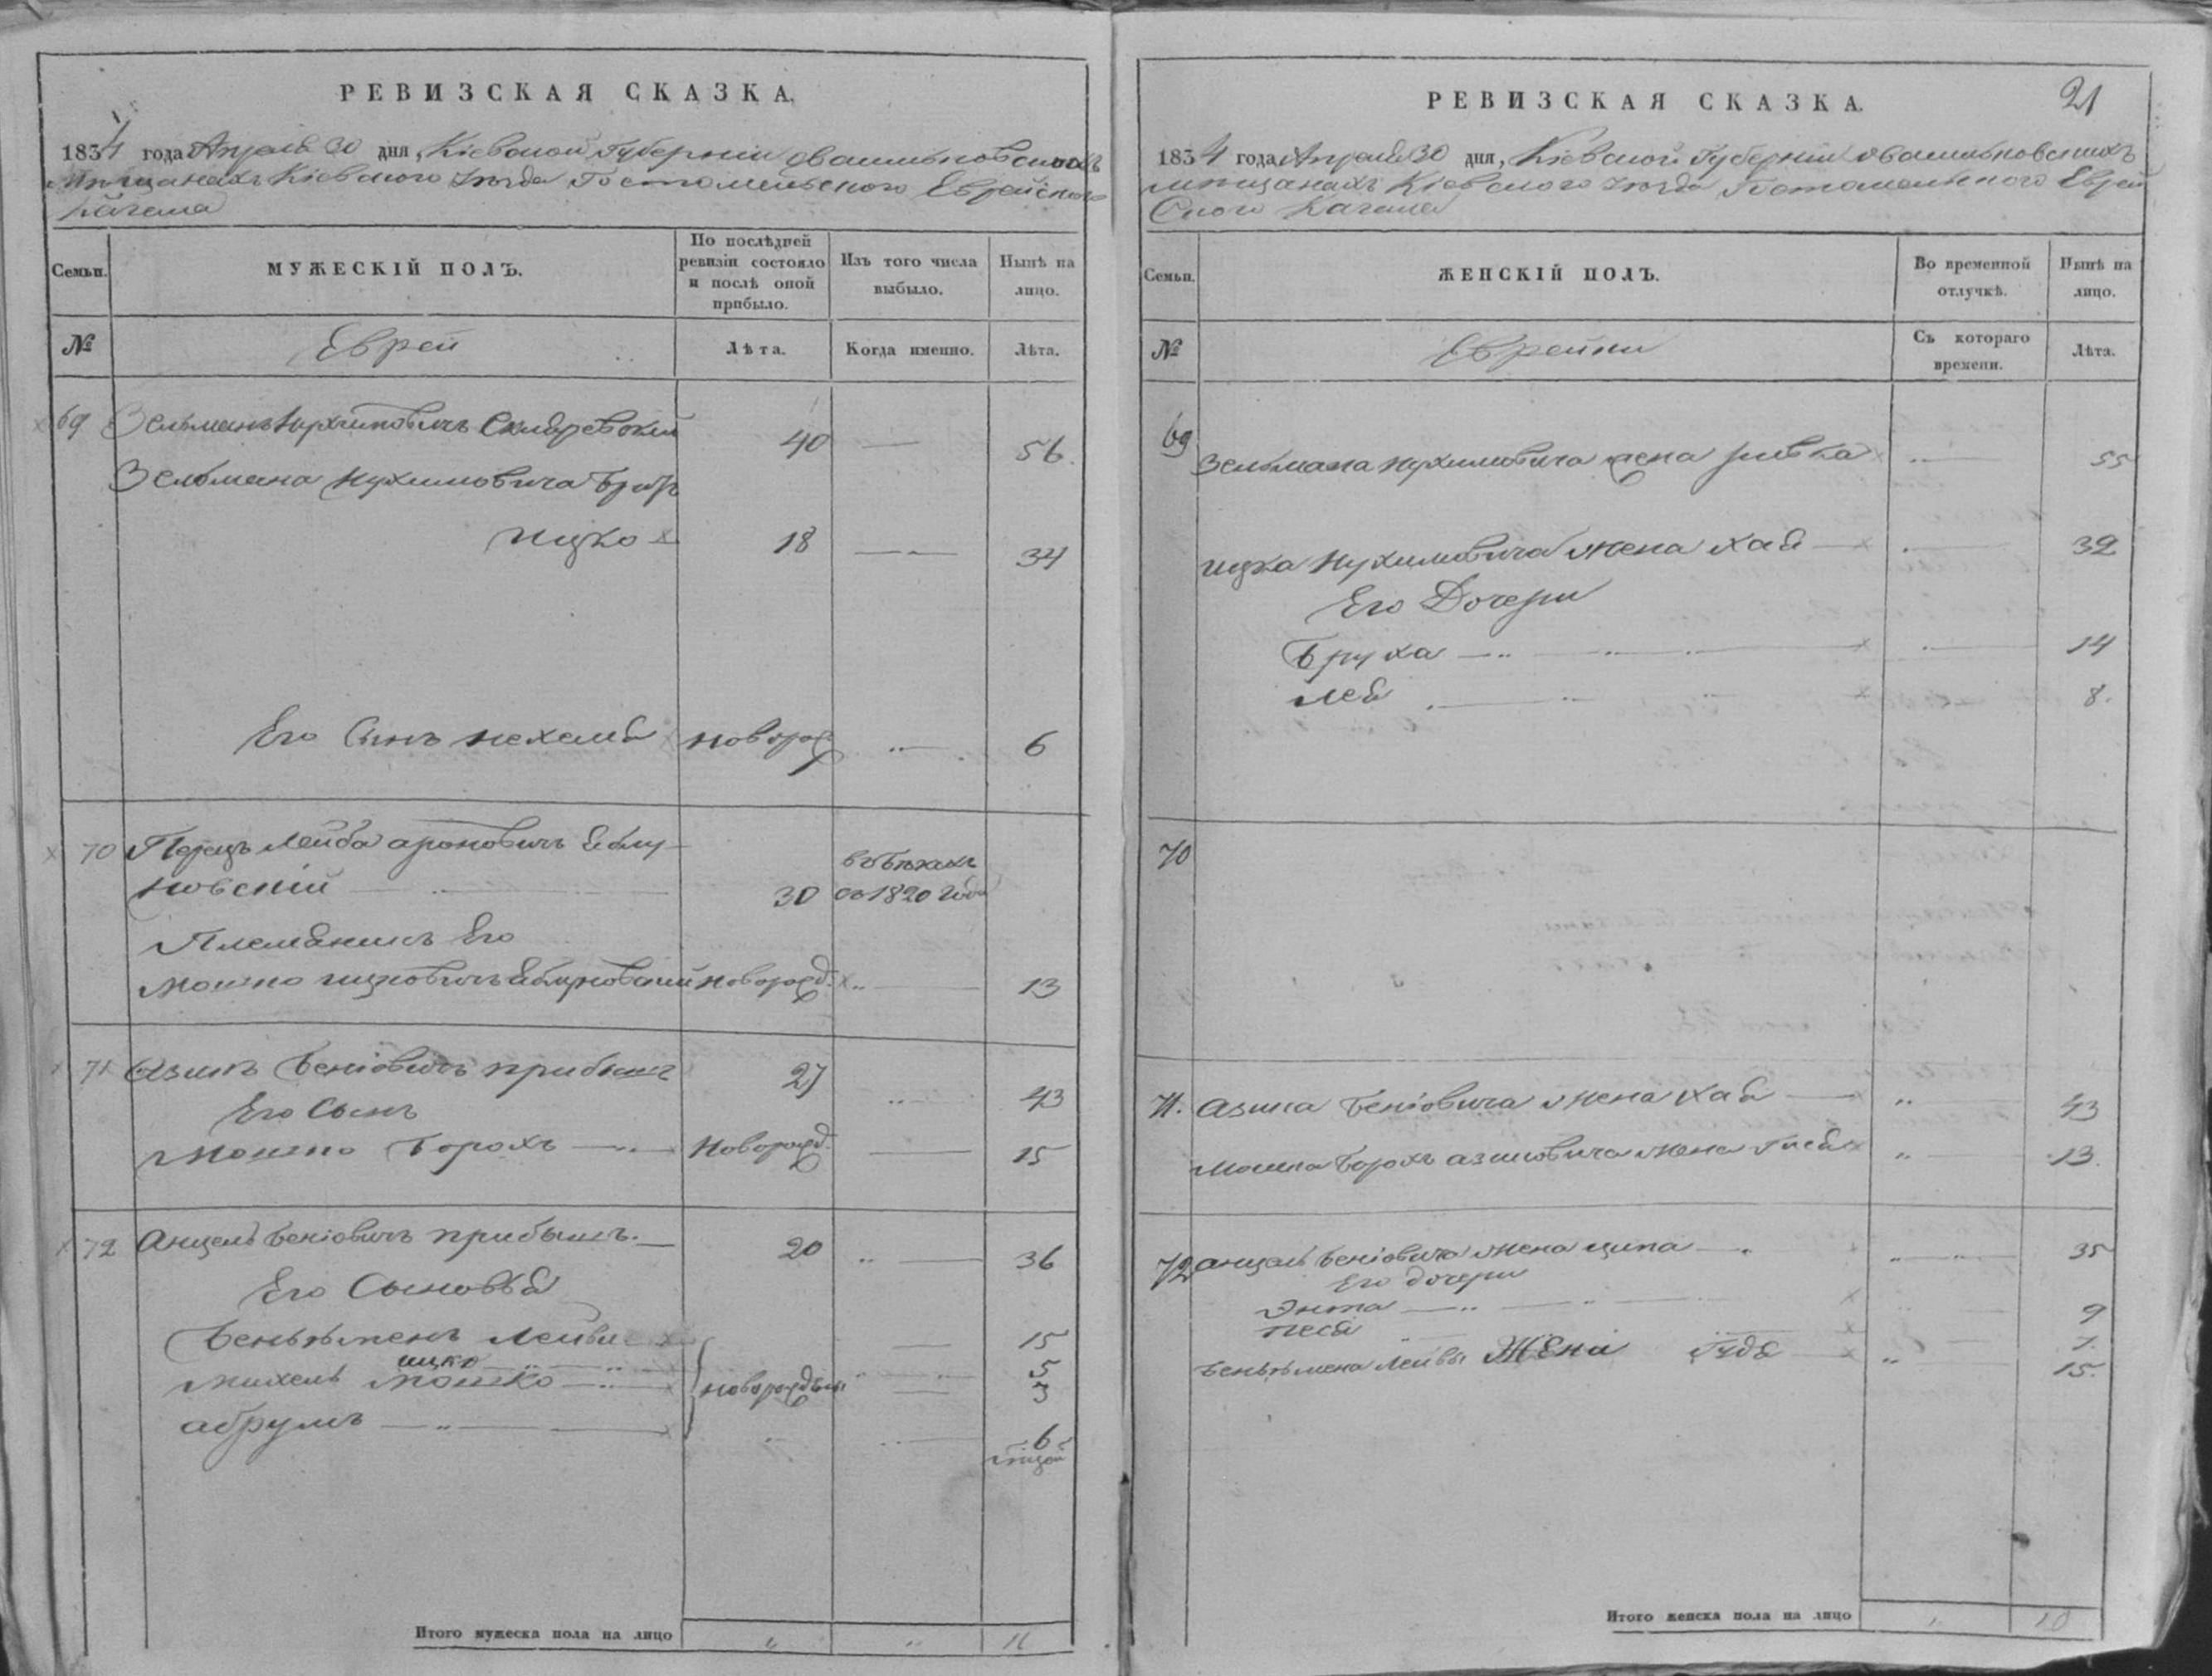 РЕВИЗСКАЯ СКАЗКА.
1834 года Апреля 30 дня, Кіевской Губерніи о васильковскихъ
мѣщанахъ Кіевского уѣзда Гостомельского Еврейского
Кагала
Семьи.
МУЖЕСКІЙ ПОЛЪ.
По послѣдней ревизіи состояло и послѣ оной прибыло.
Изъ того числа выбыло.
Нынѣ на лицо.
№
Еврей
Лѣта.
Когда именно.
Лѣта.
69 Зельманъ Нухимовичъ 40 — 56
Зельмана Нухимовича братъ
Ицко 18 — 34
Его Сынъ Нехемя новорож — 6
70 Перецъ Лейба Ароновичъ Яблу-
новскій 30 въ бѣгахъ съ 1820 года
Племянникъ Его
Мошко Ицковичъ Яблуновскій новорожд. — 13
71 Азикъ Беніовичъ 27 43
Его Сынъ
Мошко Борохъ — Новорожд. — 15
72 Анцель Беніовичъ 20 — 36
Его Сыновья
Беньяменъ Лейви — 15
ицко
Михель Мошко новорожденны 5
3
абрумъ 6
мѣсяцей
Итого мужеска пола на лицо " " 11
РЕВИЗСКАЯ СКАЗКА.
21
1834 года Апреля 30 дня, Кіевской Губерніи о васильковскихъ
мѣщанахъ Кіевского уѣзда Гостомельского Еврей
Ского Кагала
Семьи.
ЖЕНСКІЙ ПОЛЪ.
Во временной отлучкѣ.
Нынѣ на лицо.
№
Еврейки
Съ котораго времени.
Лѣта.
69 Зельмана Нухимовича жена Ривка 55
Ицка Нухимовича жена Хая — 32
Его Дочери
Бруха — 14
Лея 8.
70
71. Азика Беніовича жена Хая — 43
Мошка Борохъ Азиковича жена 13.
72 Анцеля Беніовича жена Ципа — 35
Его дочери
Энта — 9
Песя 7.
Беньямена Лейвы Жена 15.
Итого женска пола на лицо " 10